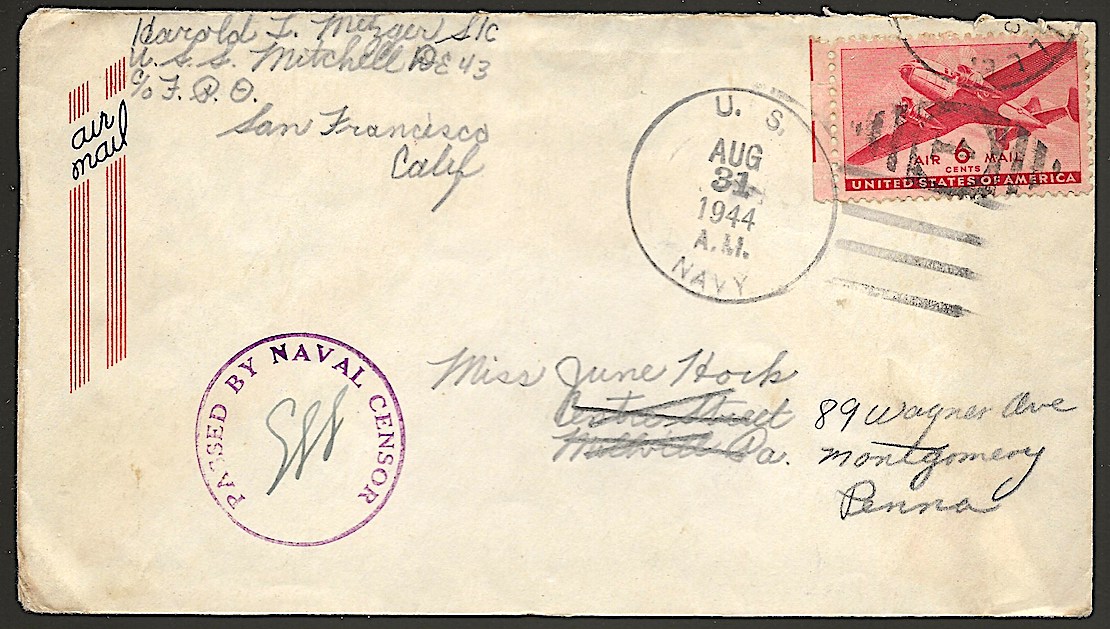 Harold F. Metzger S1c
U.S.S. Mitchell DE 43
c/o F.P.O.
San Francisco
Calif
air
mail
U. S.
AUG
31
1944
A.M.
NAVY
AIR 6 MAIL
CENTS
UNITED STATES OF AMERICA
PASSED BY NAVAL CENSOR
Miss June Hock
Center Street
Millville Pa.
89 Wagner Ave
Montgomery
Penna